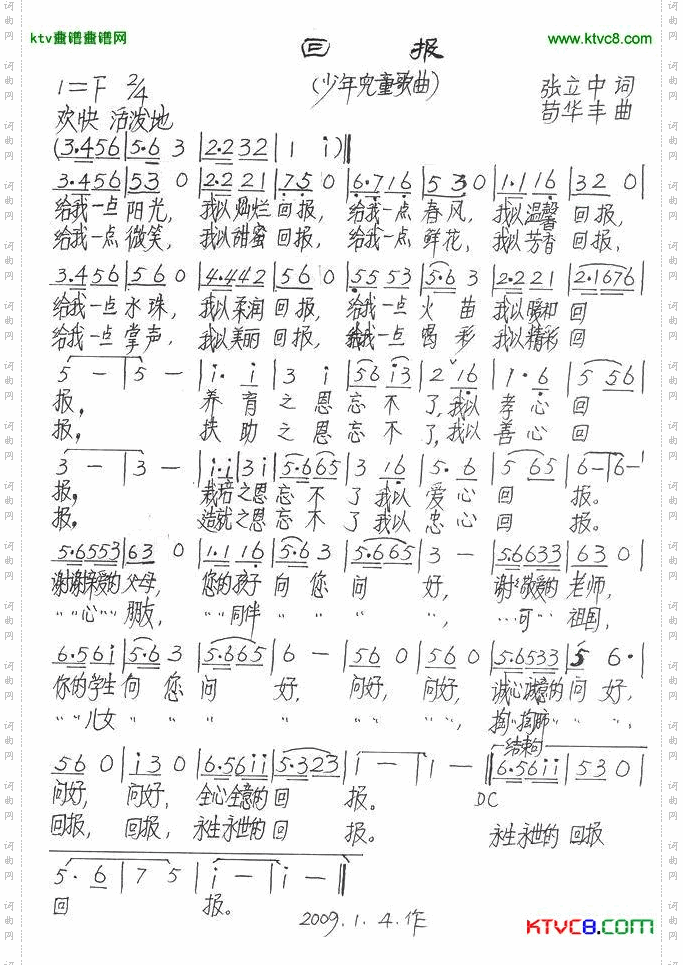 ktv歌谱歌谱网
www.ktvc8.com
回 报
(少年儿童歌曲)
1=F 2/4
张立中 词
欢快 活泼地
苟华丰 曲
(3.456|5.6 3|2.232|1 i)||
3.456|53 0|2.2 21|75 0|6.716|5 30|1.1 16|32 0|
给我一点 阳光, 我以灿烂 回报, 给我一点 春风, 我以温馨 回报,
给我一点 微笑, 我以甜蜜 回报, 给我一点 鲜花, 我以芳香 回报,
3.456|56 0|4.442|56 0|55 53|5.6 3|2.2 21|2.1676|
给我一点 水珠, 我以柔润 回报, 给我一点 火苗 我以暖和 回
给我一点 掌声, 我以美丽 回报, 给我一点 喝彩 我以精彩 回
5 -|5 -|i. i|3 i|56 i3|2ˇ16|1. 6|5 56|
报, 养育之恩忘不了,我以孝心回
报, 扶助之恩忘不了,我以善心回
3 -|3 -|i.i|3i|5.665|3 16|5. 6|5 65|6-|6-|
报, 栽培之恩忘不了 我以爱心回 报。
报。 造就之恩忘不了 我以忠心回 报。
5.6553|63 0|1.1 16|5.6 3|5.665|3 -|5.6633|63 0|
谢谢亲爱的 父母, 您的孩子 向您问 好, 谢谢敬爱的 老师,
〃〃心〃 朋友, 〃〃同伴 〃 〃 〃 〃, …可〃 祖国,
6.56i|5.6 3|5.665|6 -|56 0|56 0|5.6533|5 6.|
你的学生 向您问 好, 问好, 问好, 诚心诚意的 问好,
〃〃儿女 〃 〃 〃 〃 〃〃 〃〃, 掏〃掏肺〃 〃〃
结束句
56 0|i3 0|6.56ii|5.323|i -|i -||6.56ii|530|
问好, 问好, 全心全意的 回 报。 DC
回报, 回报, 永生永世的 回 报。 永生永世的 回报
5. 6|7 5|i -|i -||
回 报。
2009.1.4.作
KTVC8.com
词曲网